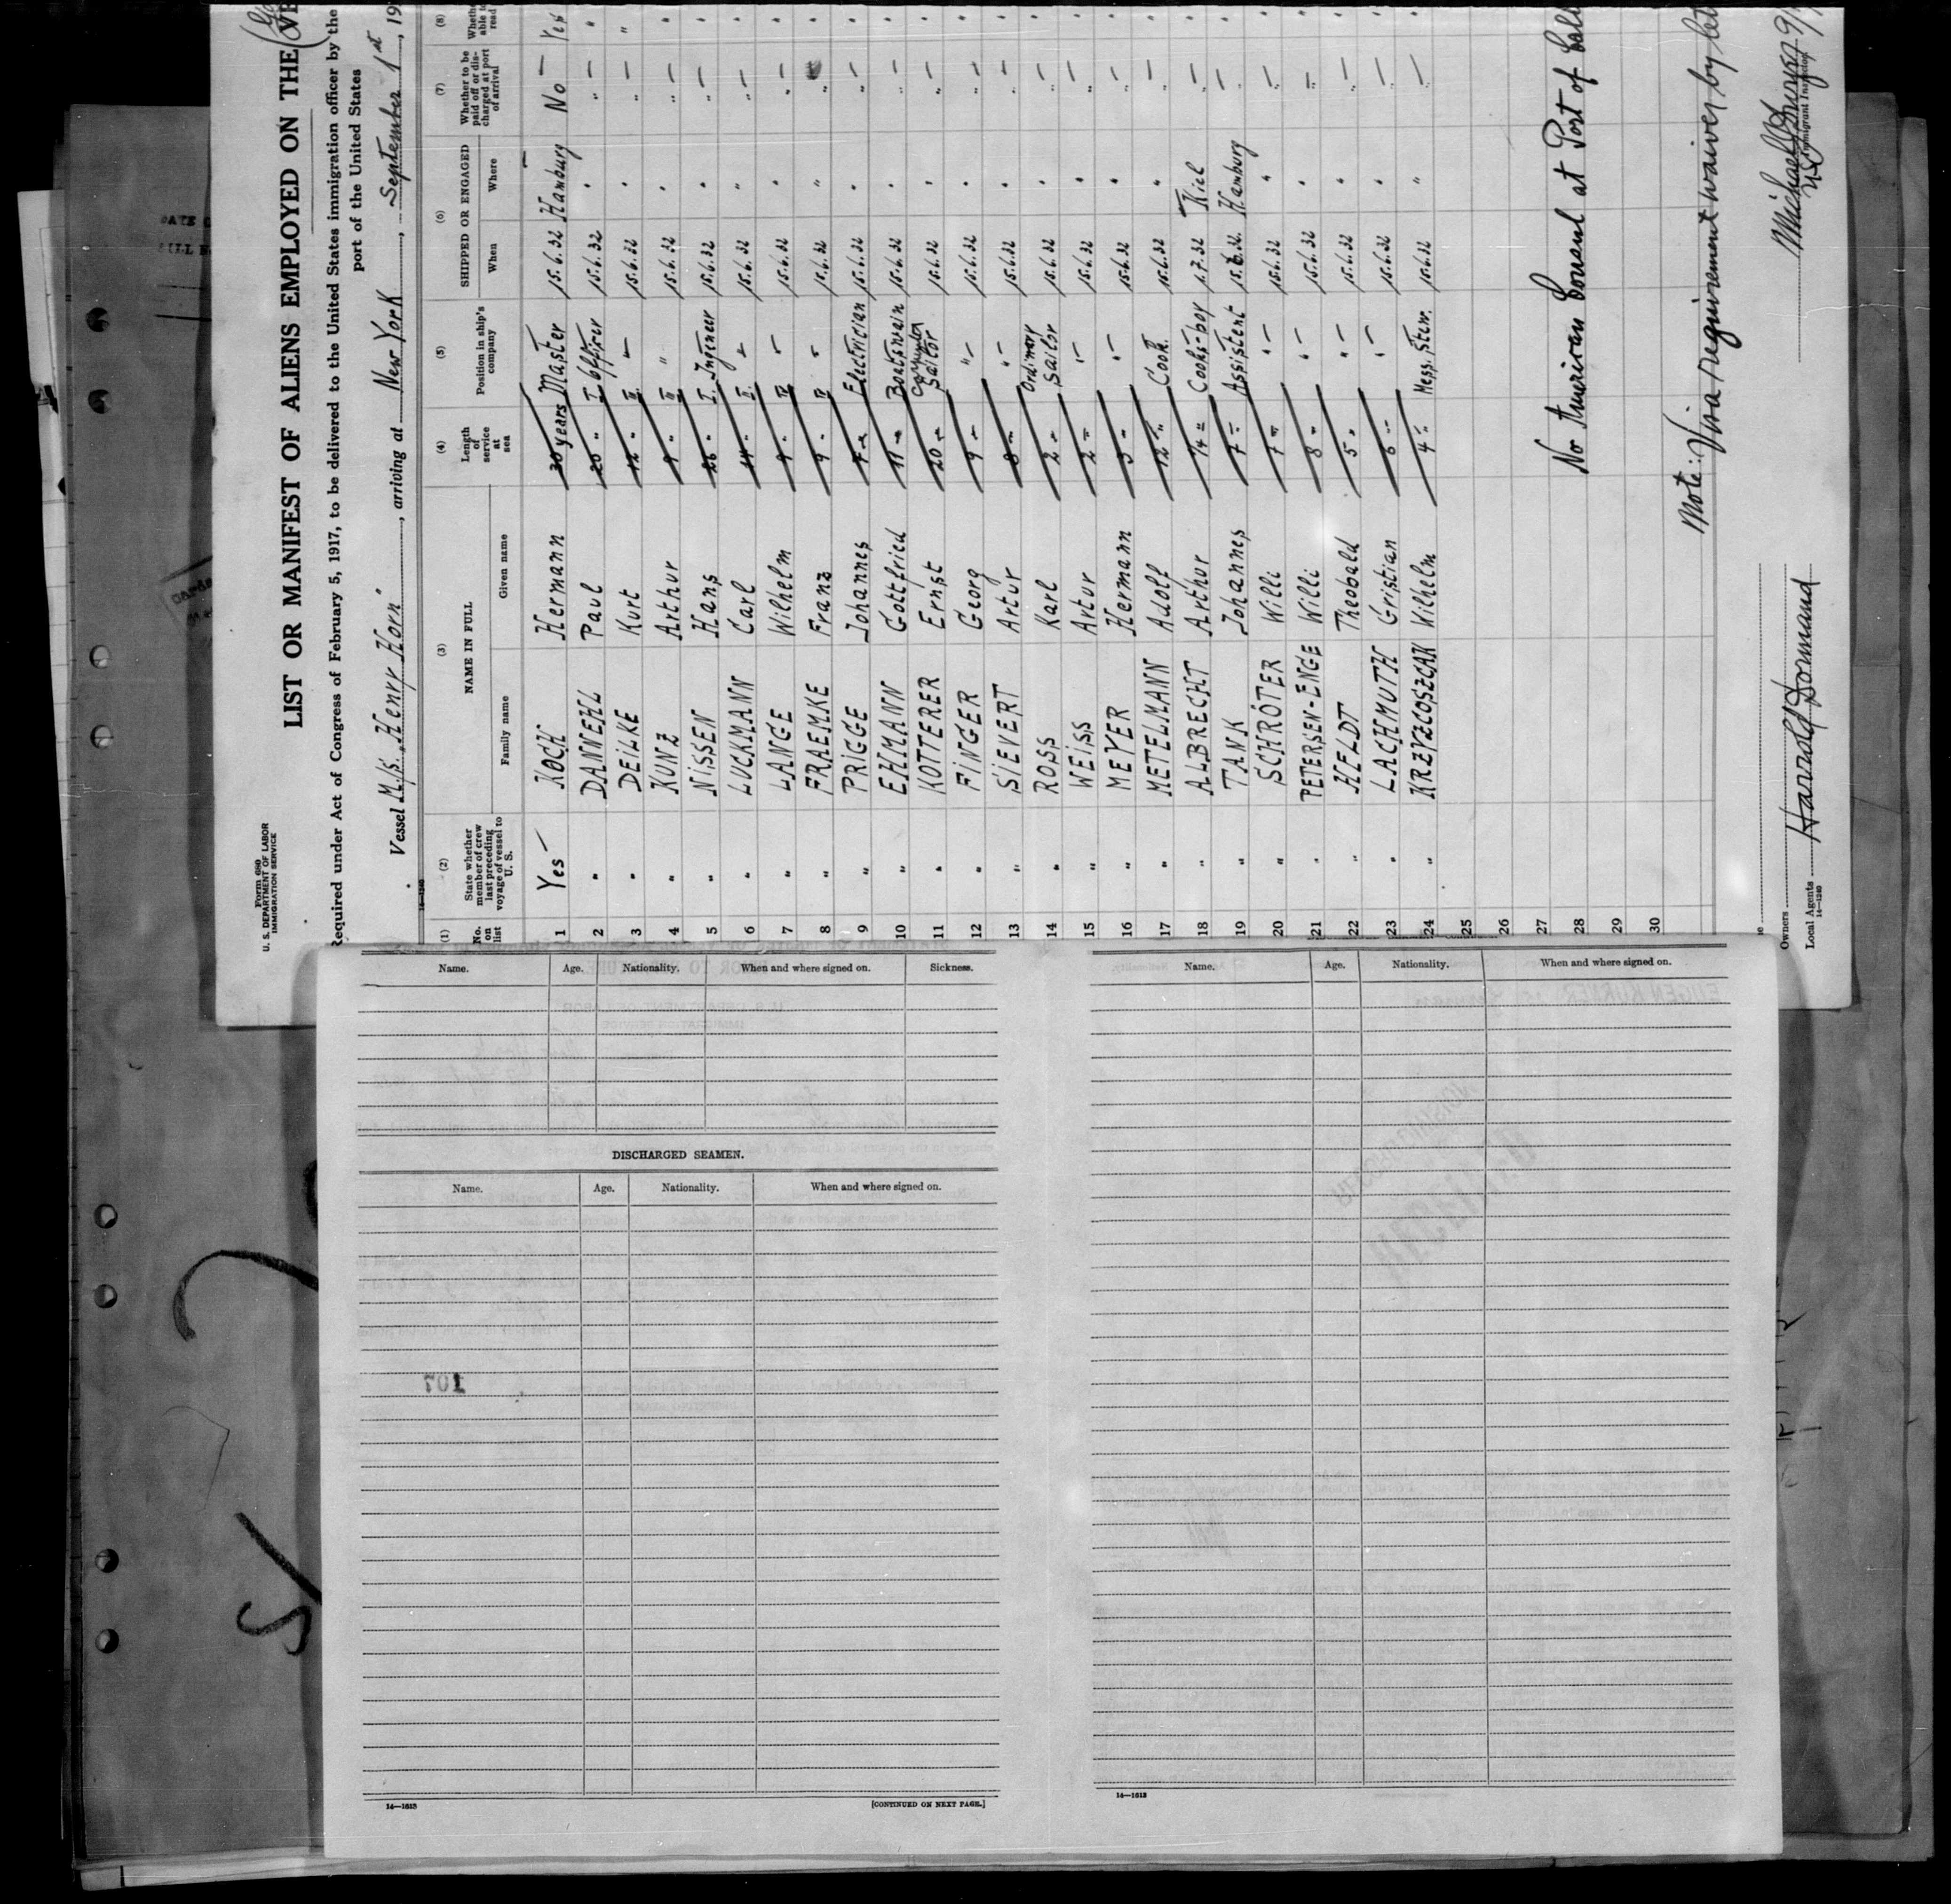 Form 680
U. S. DEPARTMENT OF LABOR
IMMIGRATION SERVICE
LIST OR MANIFEST OF ALIENS EMPLOYED ON THE
Required under Act of Congress of February 5, 1917, to be delivered to the United States immigration officer by the
port of the United States
Vessel M/S. „Henry Horn", arriving at New York, September 1st, 19
(1) (2) (3) (4) (5) (6) (7) (8)
No. on list
State whether member of crew last preceding voyage of vessel to U. S.
NAME IN FULL
Family name Given name
Length of service at sea
Position in ship's company
SHIPPED OR ENGAGED
When Where
Whether to be paid off or discharged at port of arrival
1 Yes — KOCH Hermann 30 years Master 15.6.32 Hamburg No — Yes
2 " DANNEHL Paul 20 " I Officer 15.6.32 " " — "
3 " DEILKE Kurt 12 " II — 15.6.32 " " — "
4 " KUNZ Arthur 9 " II " 15.6.32 " " — "
5 " NISSEN Hans 26 " I. Ingeneer 15.6.32 " " — "
6 " LUCKMANN Carl 14 " II. " 15.6.32 " " — "
7 " LANGE Wilhelm 9 " IV " 15.6.32 " " — "
8 " FRAEMKE Franz 9 " IV " 15.6.32 " "
9 " PRIGGE Johannes 7 " Electrician 15.6.32 " " — "
10 " EHMANN Gottfried 11 " Boatswain 15.6.32 " " — "
11 " KOTTERER Ernst 20 " Carpenter Sailor 15.6.32 " " — "
12 " FINGER Georg 9 " " — 15.6.32 " " — "
13 " SIEVERT Artur 8 " " — 15.6.32 " " — "
14 " ROSS Karl 2 " Ordinary Sailor 15.6.32 " " — "
15 " WEISS Artur 2 " " — 15.6.32 " " — "
16 " MEYER Hermann 3 " " — 15.6.32 " " — "
17 " METELMANN Adolf 12 " Cook. 15.6.32 " " — "
18 " ALBRECHT Arthur 1/4 " Cooks-boy 1.7.32 Kiel " — "
19 " TANK Johannes 7 " Assistent 15.6.32. Hamburg " — "
20 " SCHRÖTER Willi 7 " " — 15.6.32 " " — "
21 " PETERSEN-ENGE Willi 8 " " — 15.6.32 " " — "
22 " HELDT Theobald 5 " " — 15.6.32 " " — "
23 " LACHMUTH Gristian 6 " " — 15.6.32 " " — "
24 " KRZYZCOSZCAK Wilhelm 4 " Mess. Stew. 15.6.32 " " — "
25
26
27
28
29
30
No American Consul at Port of
Note: Visa requirement waiver by
Owners
Local Agents Harrald Dormand
14—1240
Immigrant Inspector
Name. Age. Nationality. When and where signed on. Sickness.
DISCHARGED SEAMEN.
Name. Age. Nationality. When and where signed on.
701
14—1613
[CONTINUED ON NEXT PAGE.]
Name. Age. Nationality. When and where signed on.
14—1613